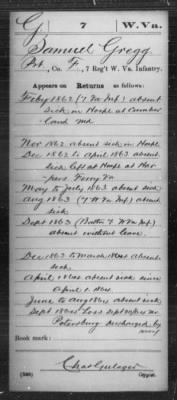 G | 7 | W. Va.
Samuel Gregg
Pvt., Co. F, 7 Reg't W. Va. Infantry.
Appears on Returns as follows:
Feby 1862 (7 Va Inf) absent
sick in Hospl at Cumber
land Md.
Nov 1862 absent sick in Hospl
Dec 1862 to April 1863 absent
sick left at Hospl at Har-
pers Ferry Va
May to July 1863 absent sick
Aug 1863 (7 W Va Inf) absent
sick
Sept 1863 (Battn 7 W Va Inf)
absent without leave.
Dec 1863 to March 1864 absent
sick.
April 1864 absent sick since
April 1. 1864
June to Aug 1864 absent sick
Sept 1864 Loss Sept
Petersburg discharged by
Book mark:
(546)
Copyist.